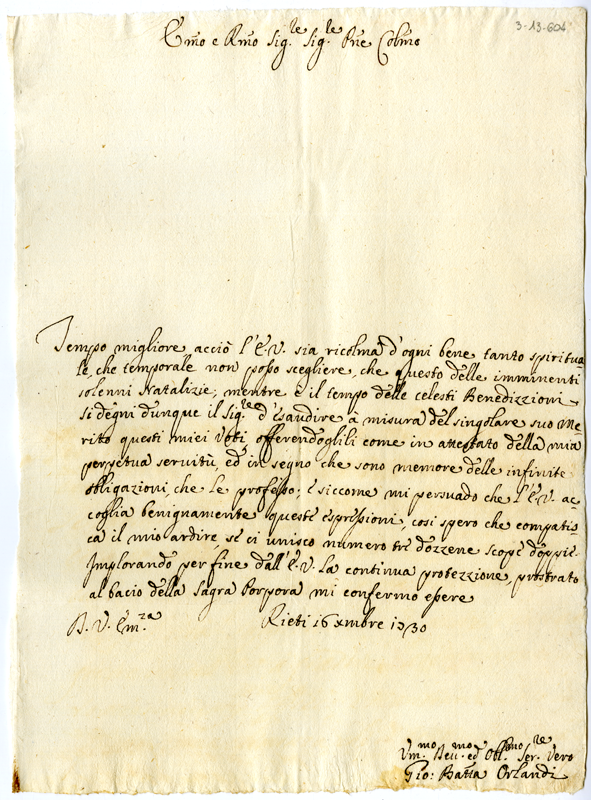 3-13-604
Emo e Rmo Sig.re Sig.re Pne Colmo
Tempo migliore acciò l'E.V. sia ricolma d'ogni bene tanto spiritua-
le, che temporale non posso scegliere, che questo delle imminenti
solenni Natalizie, mentre è il tempo delle celesti Benedizzioni
si degni dunque il Sig.re d'esaudire à misura del singolare suo Me
rito questi miei Voti offerendoglili come in attestato della mia
perpetua servitù, ed in segno che sono memore delle infinite
obligazioni, che le professo; e siccome mi persuado che l'E.V. ac-
coglia benignamente queste espressioni, così spero che compatis-
ca il mio ardire, se ci unisco numero trè dozzene scope doppie.
Implorando per fine dall'E.V. la continua protezzione, prostrato
al bacio della Sagra Porpora mi confermo essere
D. V. Em.za Rieti 16 xmbre 1730
Um.mo Dev.mo ed Obl.mo Ser.re Vero
Gio: Batta Orlandi